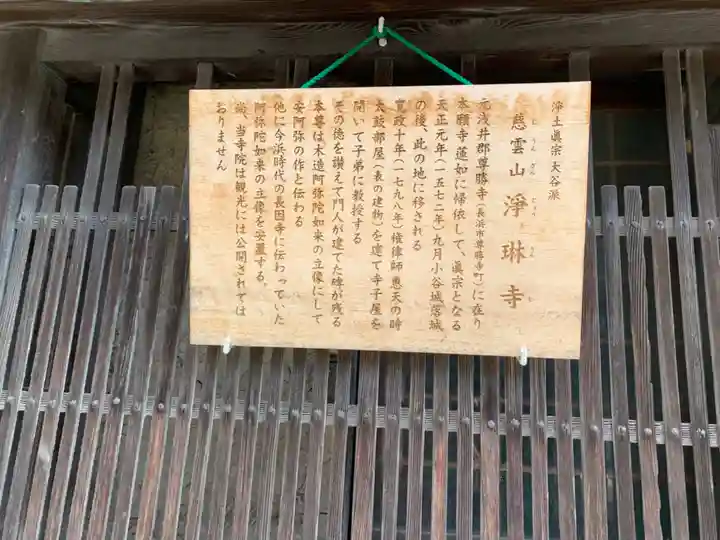 浄土眞宗 大谷派
慈雲山 淨琳寺
元浅井郡尊勝寺(長浜市尊勝寺町)に在り
本願寺蓮如に帰依して、眞宗となる
天正元年(一五七二年)九月小谷城落城
の後、此の地に移される
寛政十年(一七九八年)権律師惠天の時
太鼓部屋(表の建物)を建て寺子屋を
開いて子弟に教授する
その徳を讃えて門人が建てた碑が残る
本尊は木造阿弥陀如来の立像にして
安阿弥の作と伝わる
他に今浜時代の長因寺に伝わっていた
阿弥陀如来の立像を安置する。
尚、当寺院は観光には公開されては
おりません